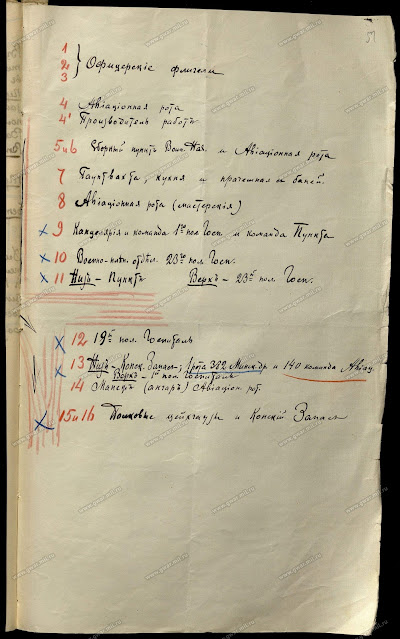 51
1
2 } Офицерскіе флигели
3
4 Авіаціонная рота
4' Производитель работъ
5 и 6 Сборный пунктъ Воин. Нач. и Авіаціонная рота
7 Гауптвахта, кухня и прачешная и баней.
8 Авіаціонная рота (мастерскія)
9 Канцелярія и команда 1го пол. Госп. и команда Пункта
10 Военно- отдѣл. 23го пол. Госп.
11 Низъ - Пунктъ Верхъ - 23й пол. Госп.
12 19й пол. Госпиталь
13 Низъ - Конск. Запасъ; рота 322 Минск. др. и 140 команда Авіац
Верхъ - 1й пол. Госпиталь
14 Манежъ (ангаръ) Авіаціон. рот.
15 и 16 цейхгаузы и Конскій Запасъ
www.gwar.mil.ru